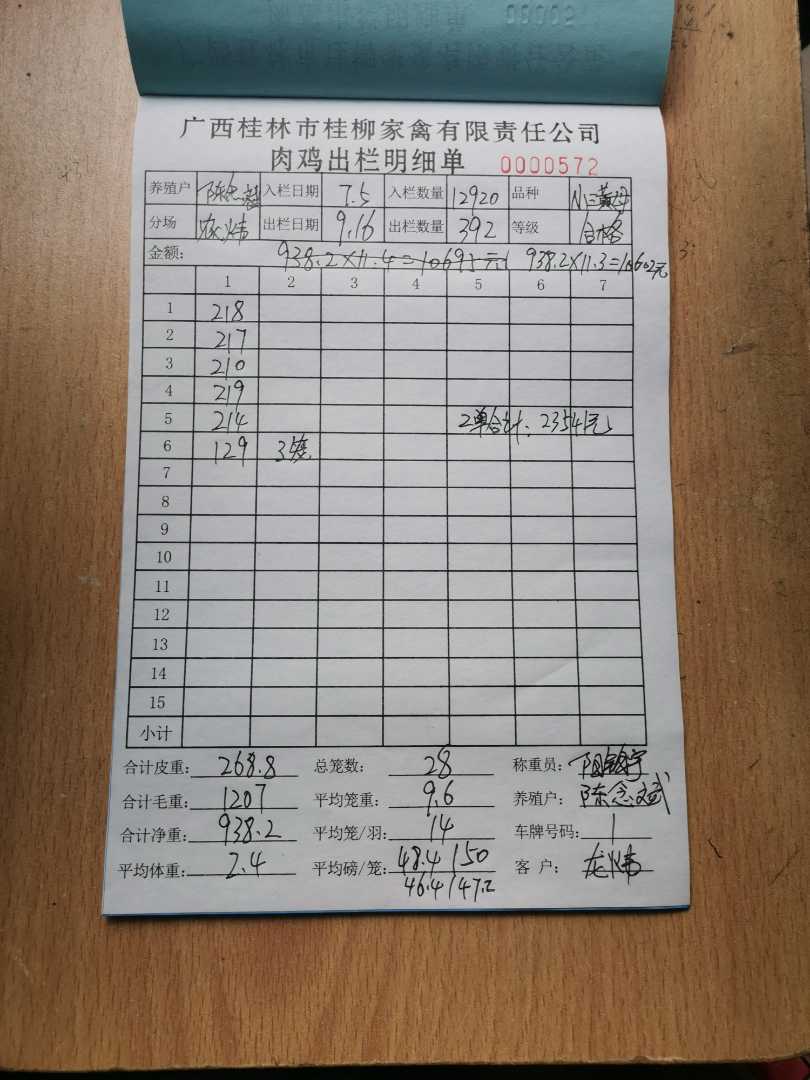 广西桂林市桂柳家禽有限责任公司
肉鸡出栏明细单 0000572
养殖户 陈念 入栏日期 7.5 入栏数量 12920 品种
分场 炜 出栏日期 9.16 出栏数量 392 等级 合格
金额: 938.2×11.4=10695元 938.2×11.3=10602元
1 2 3 4 5 6 7
1 218
2 217
3 210
4 219
5 214 2单合计: 23541元
6 129 3笼
7
8
9
10
11
12
13
14
15
小计
合计皮重: 268.8 总笼数: 28 称重员:
合计毛重: 1207 平均笼重: 9.6 养殖户: 陈念斌
合计净重: 938.2 平均笼/羽: 14 车牌号码: 1
平均体重: 2.4 平均磅/笼: 48.4/50 客 户: 龙炜
46.4/47.2